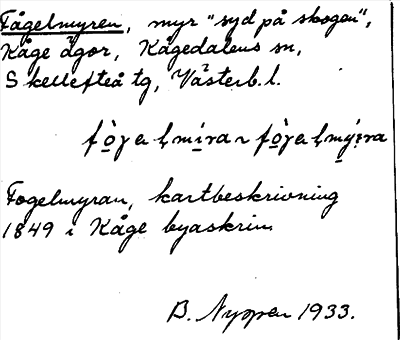 Fågelmyren, myr "syd på skogen",
Kåge ägor, Kågedalens sn,
Skellefteå tg, Västerb. l.
Fogelmyran, kartbeskrivning
1849 i Kåge byaskrin.
B. Nyppen 1933.